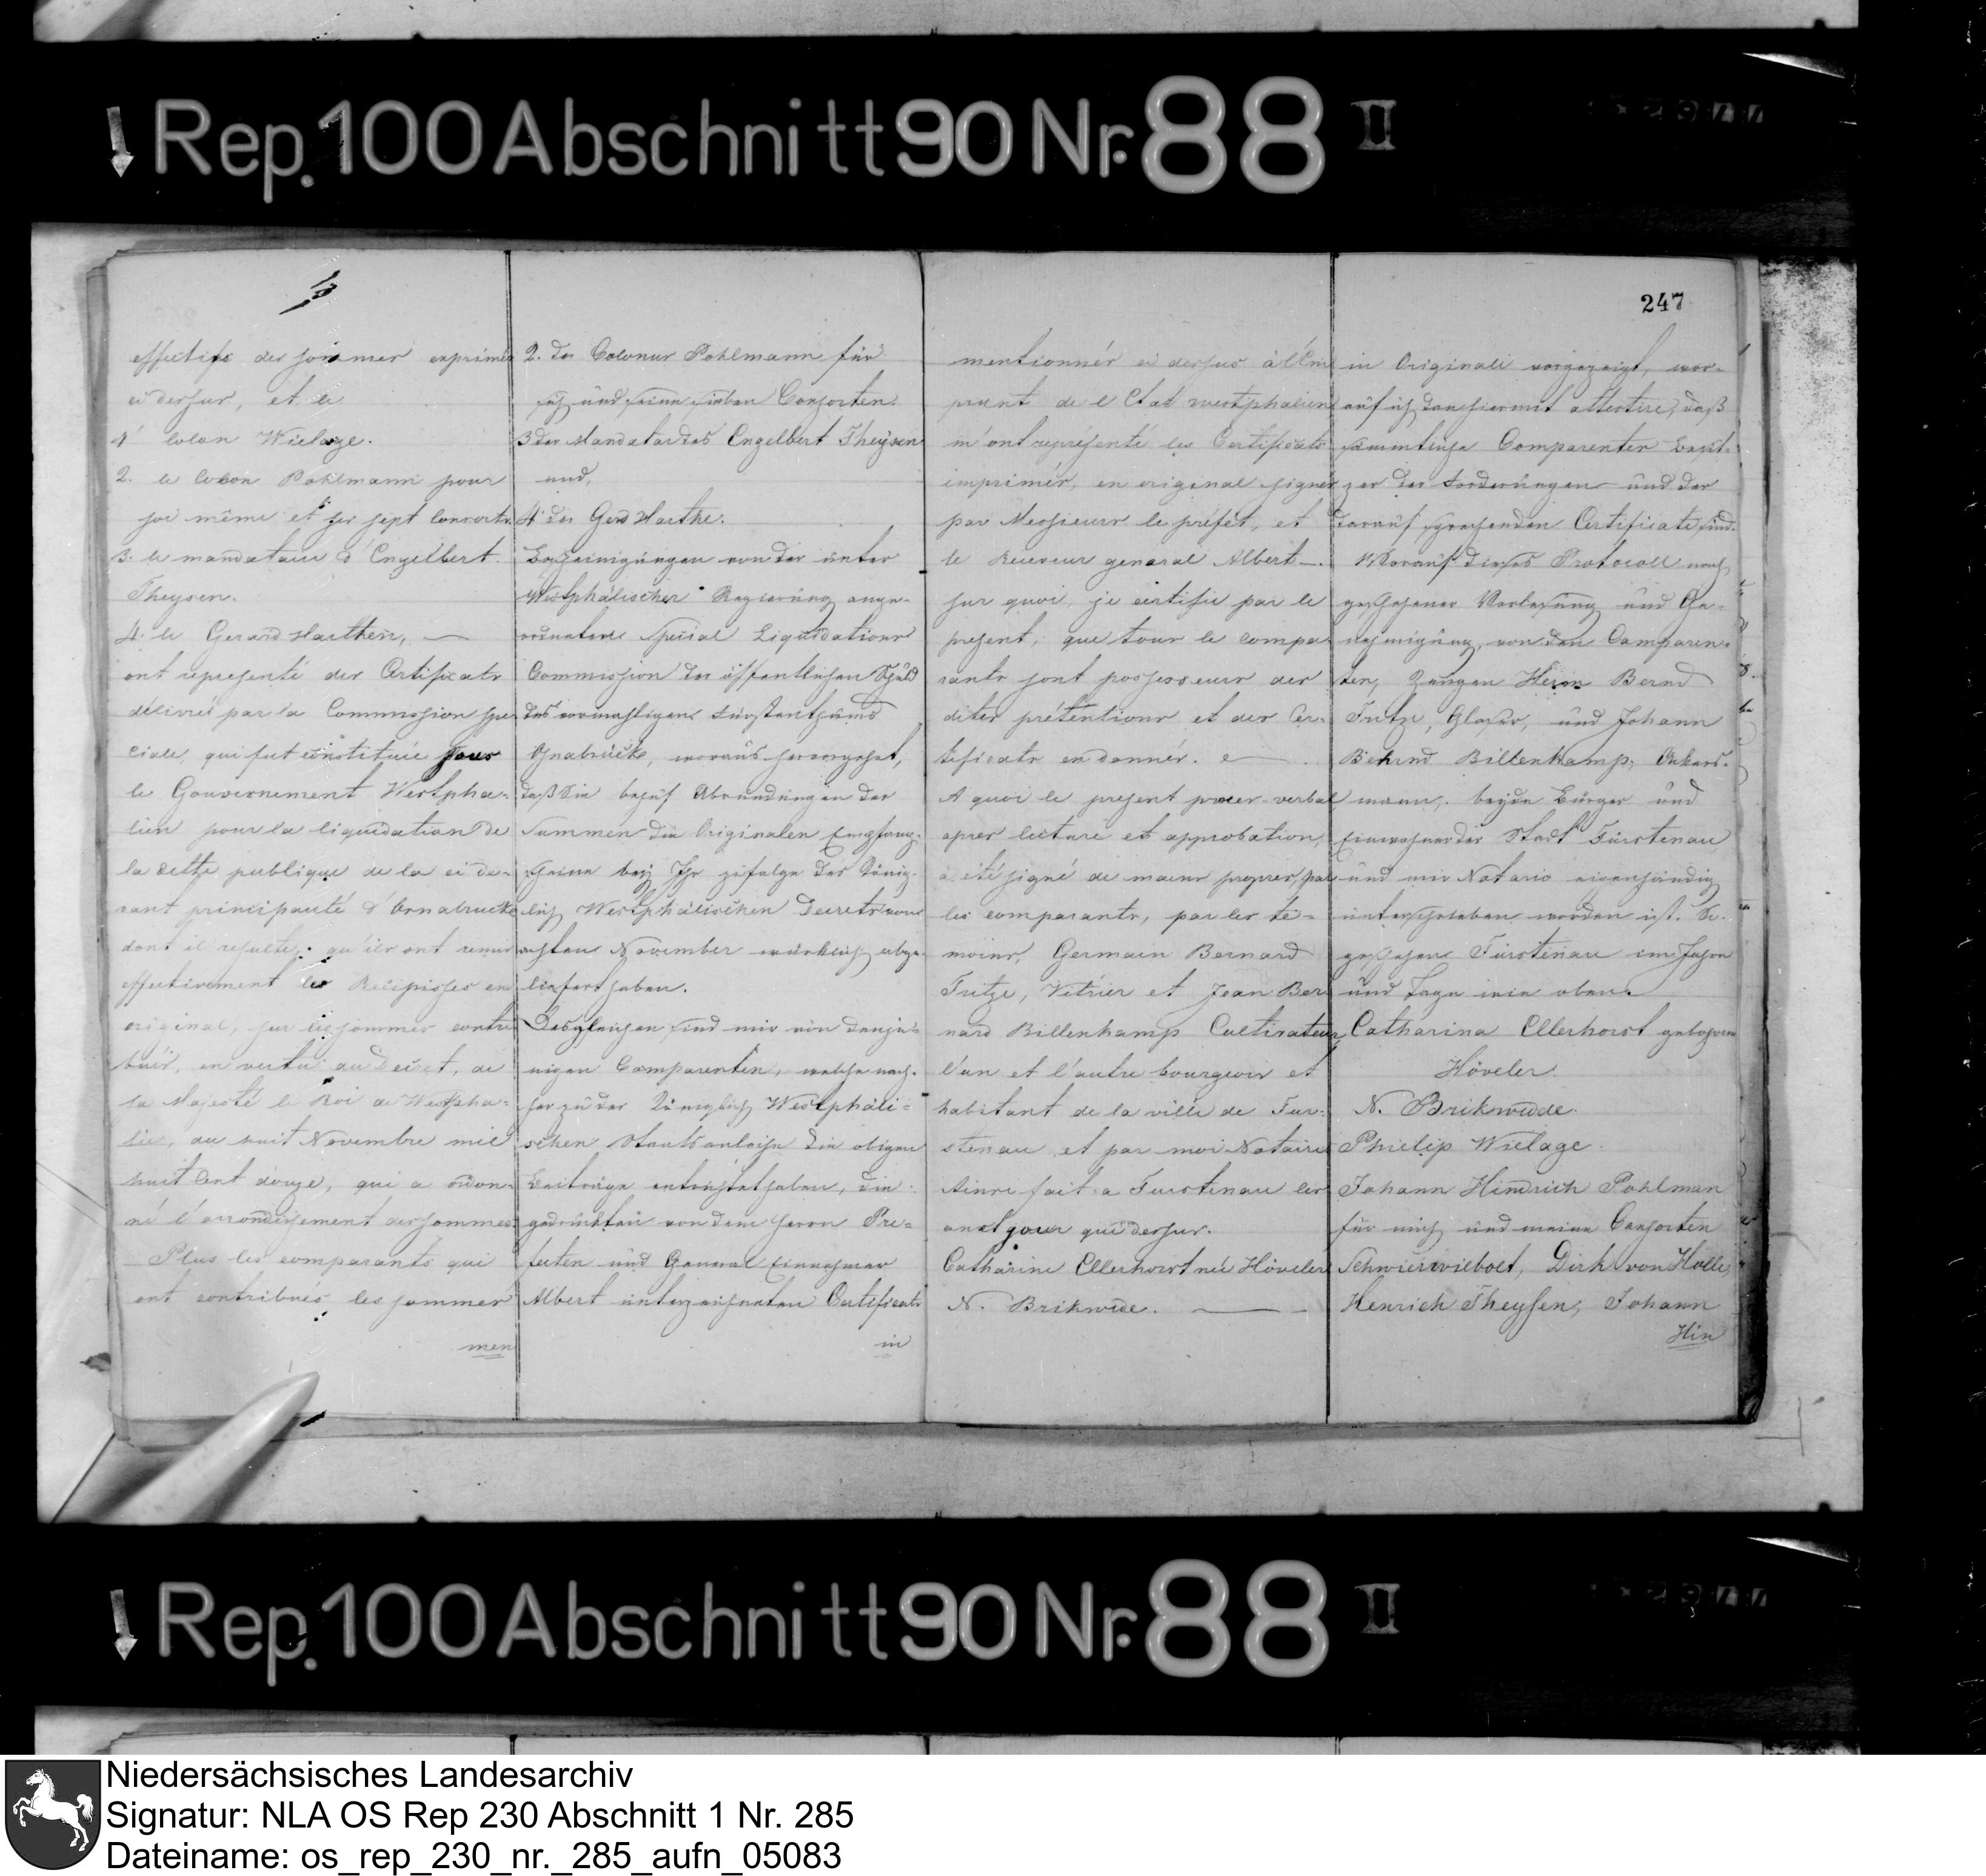 Rep. 100 Abschnitt 90 Nr. 88 II
247
effectifs des sommes exprimés
ci dessus, et le
1 Colon Wielage.
2. le Colon Pohlmann pour
soi même et ses sept Consorts
3. le mandataire d'Engelbert
Theysen.
4. le Gerard Harthen, —
ont representé des Certificats
délivrés par la Commission spe
ciale, qui fut constituée sous
le Gouvernement Westpha-
lien pour la liquidation de
la dette publique de la ci de-
vant principauté d'Osnabruck
dont il resulte, qu'ils ont remis
effectivement les Recepisses en
original, sur les sommes contri
bués, en vertu du Decret, de
sa Majesté le Roi de Westpha-
lie, du huit Novembre mil
huit Cent douze, qui a ordon-
né l'arrondissement des sommes
Plus les comparants qui
ont contribués les sommes
men
2. der Colonus Pohlmann für
sich und seine sieben Consorten
3 der Mandatar des Engelbert Theysen
und,
4 der Gerd Harthe.
Bescheinigungen von der unter
Westphälischer Regierung ange-
ordneten Special Liquidations
Commission der öffentlichen Schuld
des vormahligen Fürstenthums
Osnabrück, woraus hervorgehet,
daß Sie behuf Abrundungen der
Summen die Originalen Empfang-
scheine bey Ihr zufolge des König-
lich Westphälischen Decrets vom
achten November würklich abge-
liefert haben.
Desgleichen sind mir von denje-
nigen Comparenten, welche nach-
her zu der Königlich Westphäli-
schen Staatsanleihe die obigen
Beiträge entrichtet haben, die
gedruckten von dem Herrn Pre-
fecten und General Einnehmer
Albert unterzeichneten Certificate
in
mentionnés ci dessus à l'Em
prunt de l'Etat westphalien
m'ont representé les Certificats
imprimés, en original signés
par Messieurs le préfet, et
le Receveur general Albert —.
sur quoi, je certifie par le
present, que tous le compa
rants sont possesseurs des
dites prétentions et des Cer-
tificats en donnés.
A quoi le present proces-verbal
apres lecture et approbation,
à été signé de mains propres, par
les comparants, par les te-
moins, Germain Bernard
Fritze, Vetrier et Jean Ber
nard Billenkamp Cultivateur,
l'un et l'autre bourgeois et
habitant de la ville de Fur-
stenau, et par moi Notaire
Ainsi fait a Furstenau les
an et jour que dessus.
Catharine Ellerhorst née Höveler
N. Brikwede. —
in Originali vorgezeigt, wor-
auf ich dan hiermit attestire, daß
sämmtliche Comparenten besit-
zer der Forderungen und der
darauf sprechenden Certificate sind.
Worauf dieses Protocoll nach
geschehener Vorlesung und Ge-
nehmigung, von den Comparen-
ten, Zeugen Herm Bernd
Fritze, Glaser, und Johann
Behrnd Billenkamp, Ackers-
mann, beyde Bürger und
Einwohner der Stadt Fürstenau
und mir Notario eigenhändig
unterschrieben worden ist. So
geschehen Fürstenau im Jahre
und Tage wie oben.
Catharina Ellerhorst geborne
Höveler
N. Brikwedde.
Philip Wielage
Johann Hindrich Pohlman
für mich und meine Consorten
Schwierwilbolt, Dirk von Holle,
Henrich Theysen, Johann
Hin
Rep. 100 Abschnitt 90 Nr. 88 II
Niedersächsisches Landesarchiv
Signatur: NLA OS Rep 230 Abschnitt 1 Nr. 285
Dateiname: os_rep_230_nr._285_aufn_05083